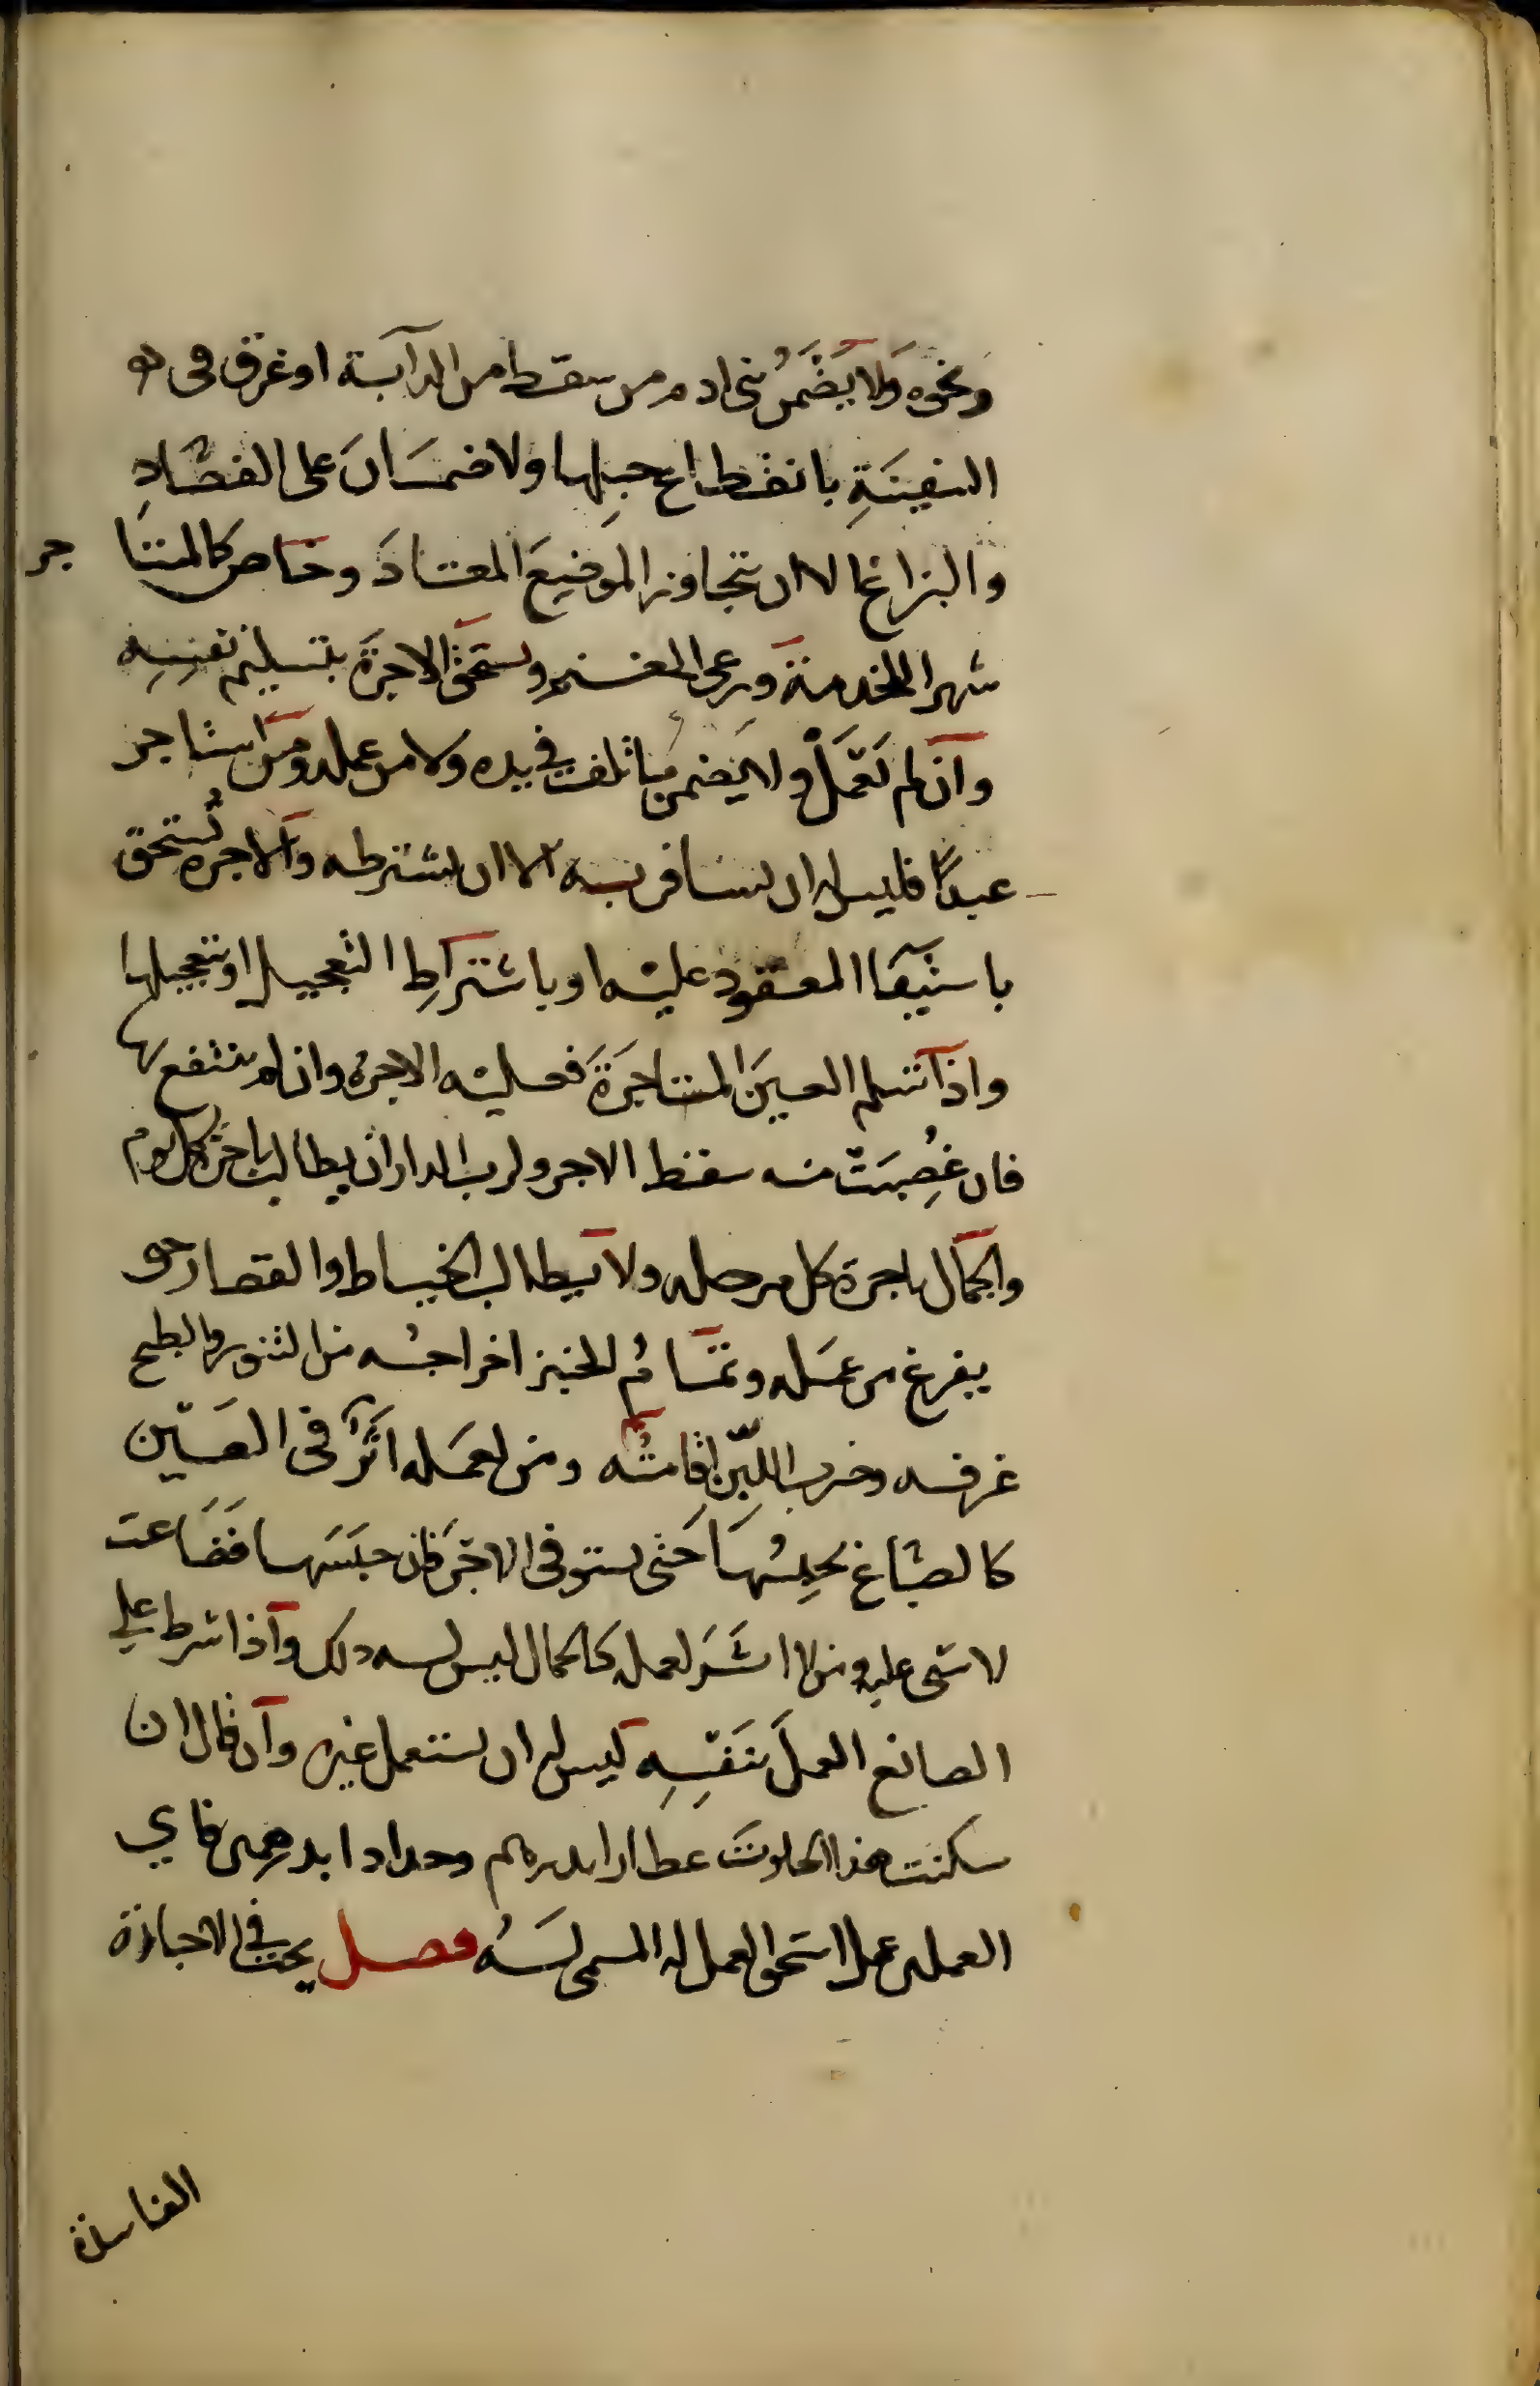 ونحوه ولا يَضْمَنُ بنى ادم من سقط من الدابة او غرق فى
السفينَةِ بانقطاع حبلِها ولا ضمَانَ على الفصَّادِ
والبزاغ الا ان يتجاوز الموضِعَ المعتادَ وخاص كالمستا جر
شهرا للخدمة ورعى الغنم ويستحق الاجرةَ بتسليم نفسِهِ
وان لم يَعْمَلْ ولا يضمن ما تلف في يده ولا من عمله ومن استاجر
عبدًا فليس له ان يسافر به الا ان يشترطه والاجرة تُستحق
باستيفا المعقود عليه او باشتراطِ التعجيل او بتعجيلها
واذا تسلم العينَ المستاجرَةَ فعليه الاجرة وان لم ينتفع بها
فان غُصِبَتْ منه سقط الاجر ولرب الدار ان يطالب باجرة كل يوم
والجمال باجرة كل مرحله ولا يطالب الخياط والقصار حتى
يفرغ من عمَله وتمَامُ الخبز اخراجُه من التنور والطبخ
غرفه وضرب اللَّبِن اقامتُه ومن لعمَله اثرٌ فى العَيْن
كالصبّاغ يحبِسُها حَتى يستوفى الاجرَ فان حبَسَها فضَاعت
لا شى عليه ومن لا اثَرَ لعمله كالحمال ليس له ذلك واذا شرط على
الصانع العملَ بنَفْسِهِ ليس له ان يستعمل غيره وان قال ان
سكنت هذا الحانوتَ عطارا بدرهم وحدادا بدرهمين فاي
العملين عمل استحق العمل له المسمى لَهُ فصل يجب فى الاجازة
الفاسدة